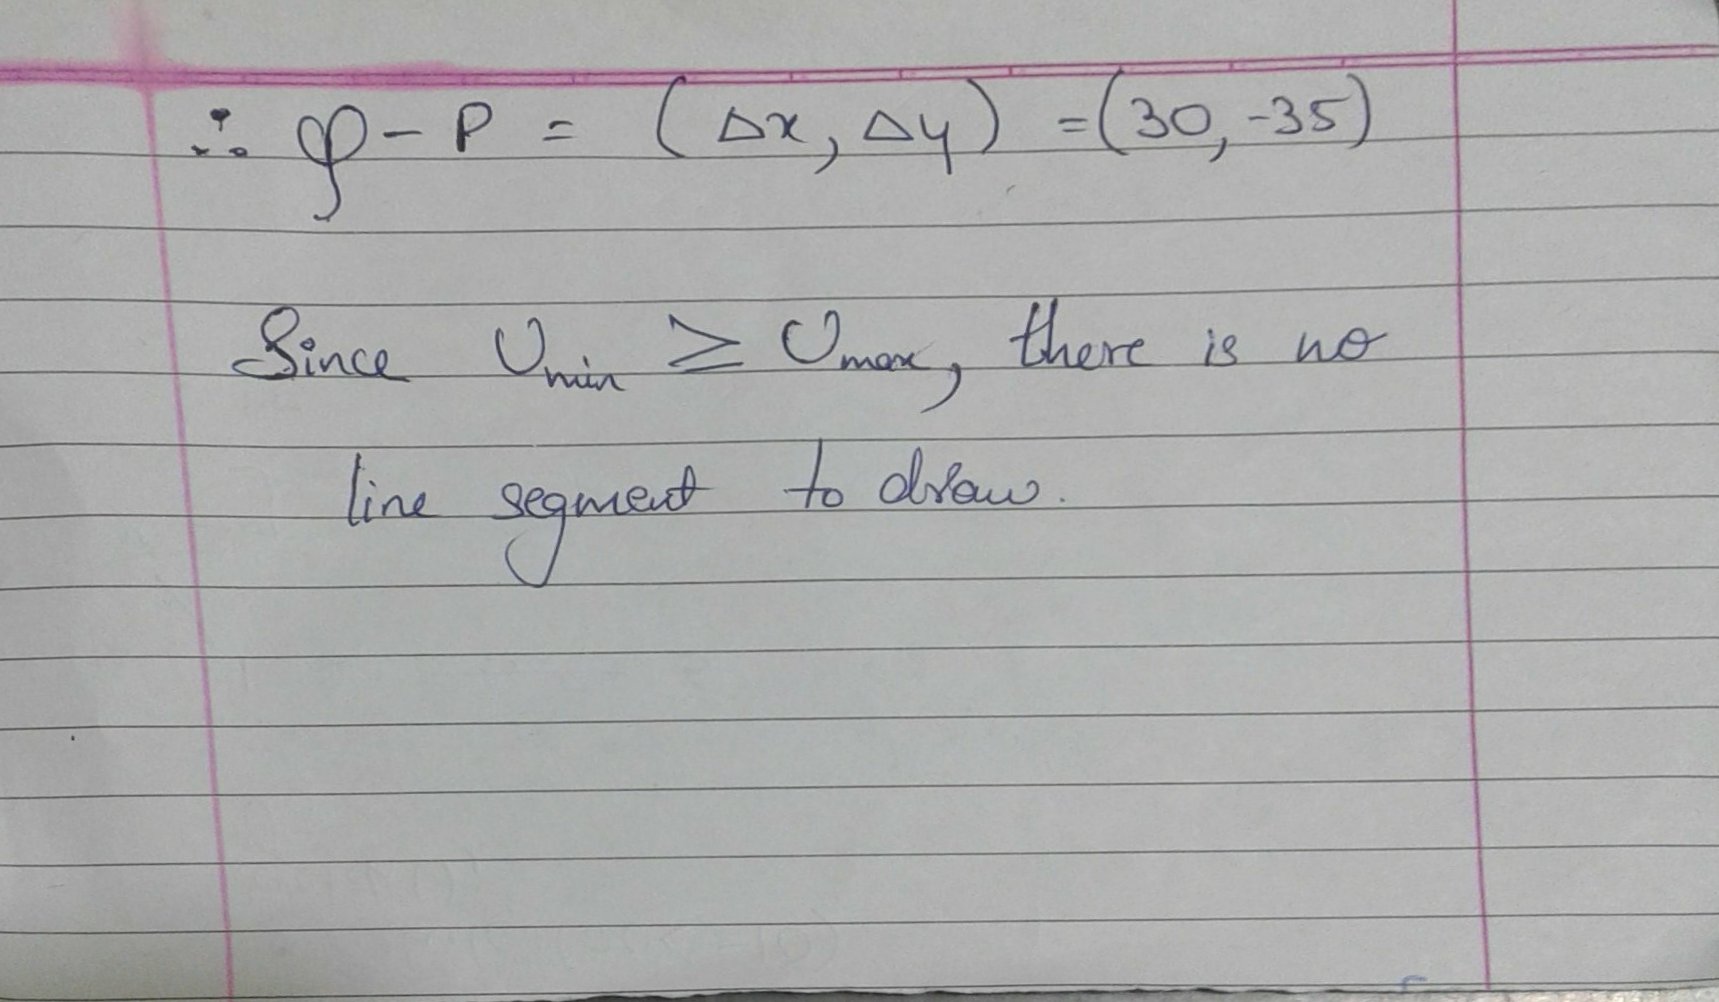 ∴ φ - P = (Δx, Δy) = (30, -35)
Since Umin ≥ Umax, there is no
line segment to draw.